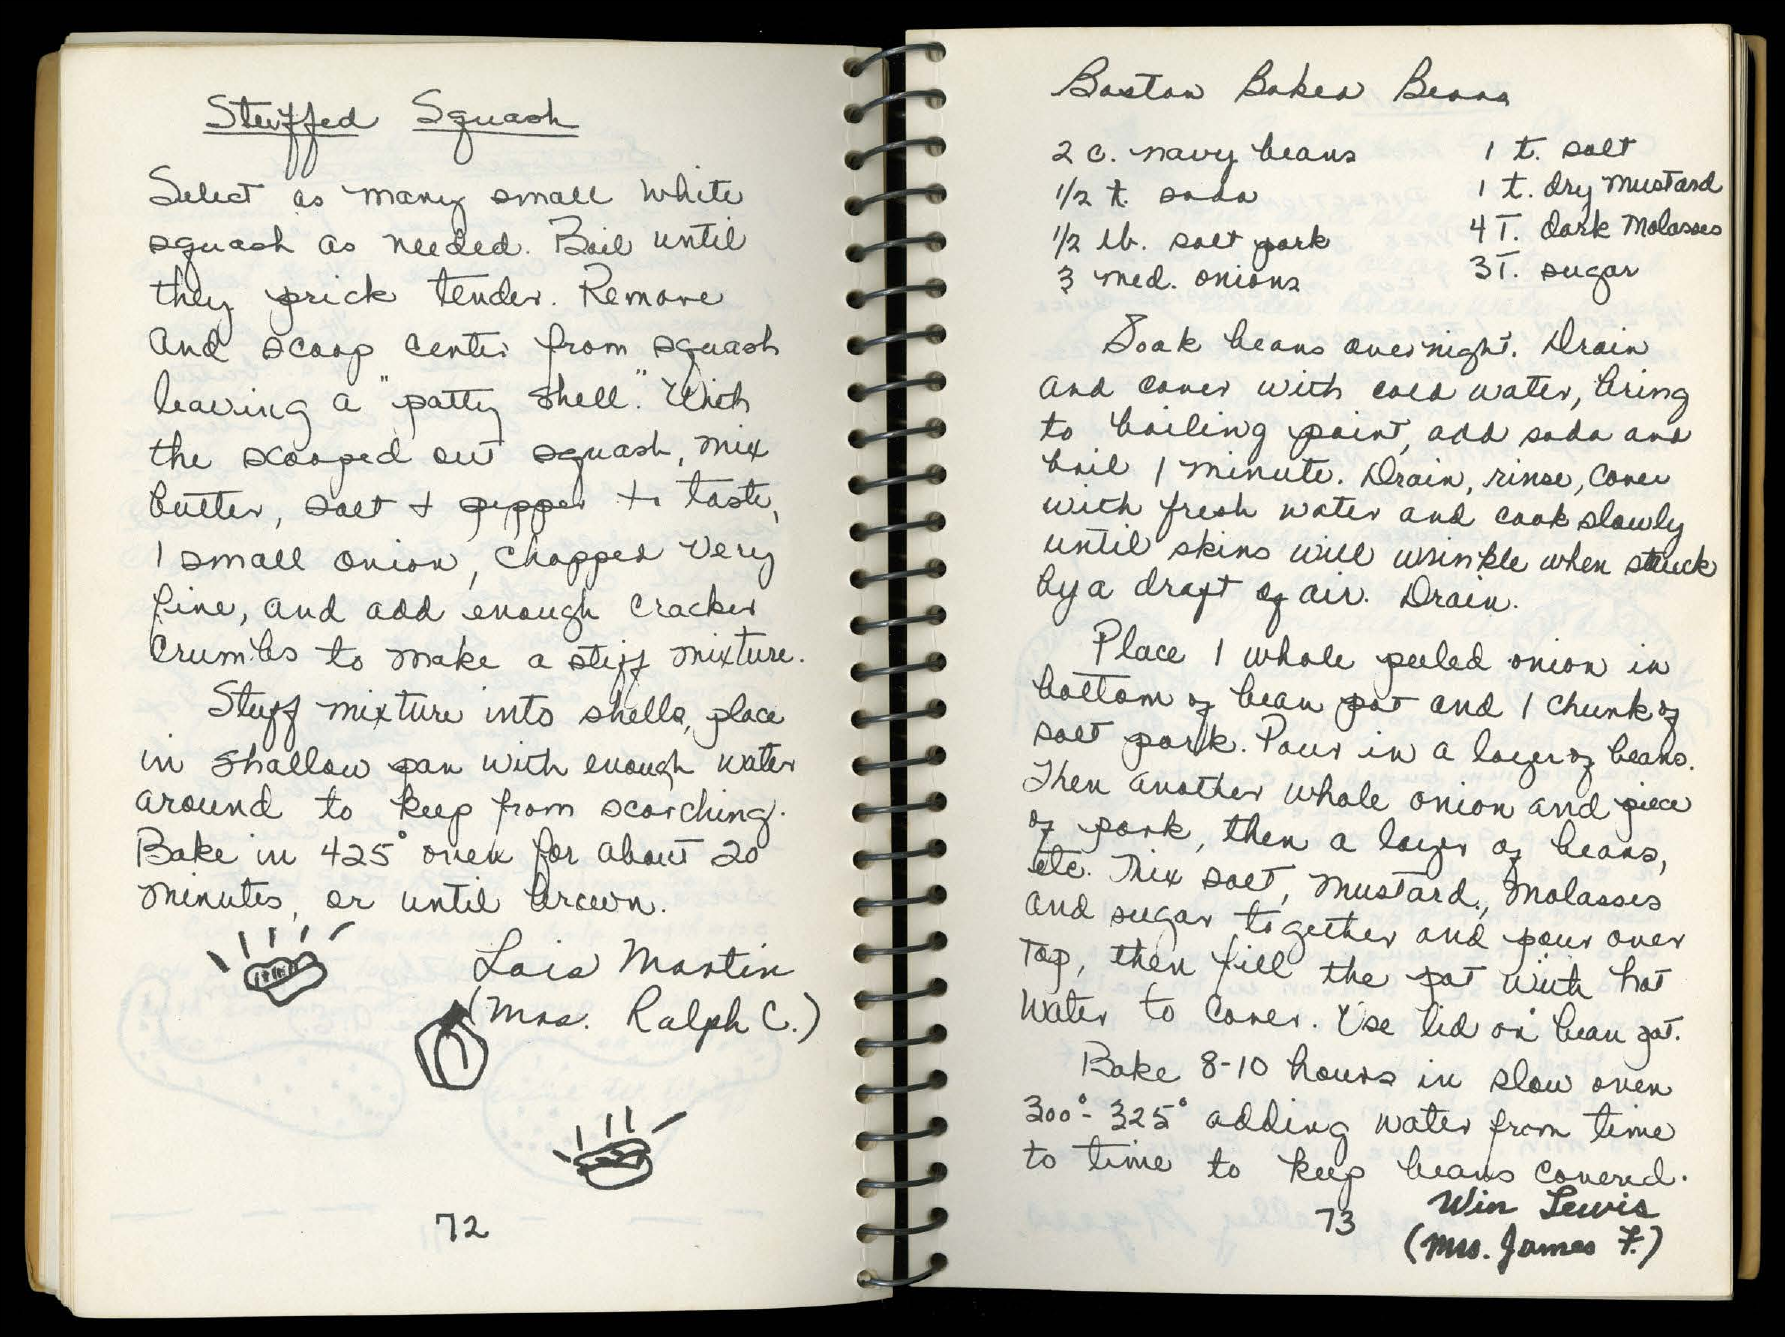 Stuffed Squash
Select as many small white
squash as needed. Boil until
they prick tender. Remove
and scoop center from squash
leaving a "patty shell." With
the scooped out squash, mix
butter, salt + pepper to taste,
1 small onion, chopped very
fine, and add enough cracker
crumbs to make a stiff mixture.
Stuff mixture into shells, place
in shallow pan with enough water
around to keep from scorching.
Bake in 425° oven for about 20
minutes, or until brown.
Lois Martin
(Mrs. Ralph C.)
72
Boston Baked Beans
2 c. navy beans 1 t. salt
1/2 t. soda 1 t. dry mustard
1/2 lb. salt pork 4 T. dark molasses
3 med. onions 3 T. sugar
Soak beans overnight. Drain
and cover with cold water, bring
to boiling point, add soda and
boil 1 minute. Drain, rinse, cover
with fresh water and cook slowly
until skins will wrinkle when struck
by a draft of air. Drain.
Place 1 whole peeled onion in
bottom of bean pot and 1 chunk of
salt pork. Pour in a layer of beans.
Then another whole onion and piece
of pork, then a layer of beans,
etc. Mix salt, mustard, molasses
and sugar together and pour over
top, then fill the pot with hot
water to cover. Use lid on bean pot.
Bake 8-10 hours in slow oven
300°-325° adding water from time
to time to keep beans covered.
Win Lewis
(Mrs. James F.)
73